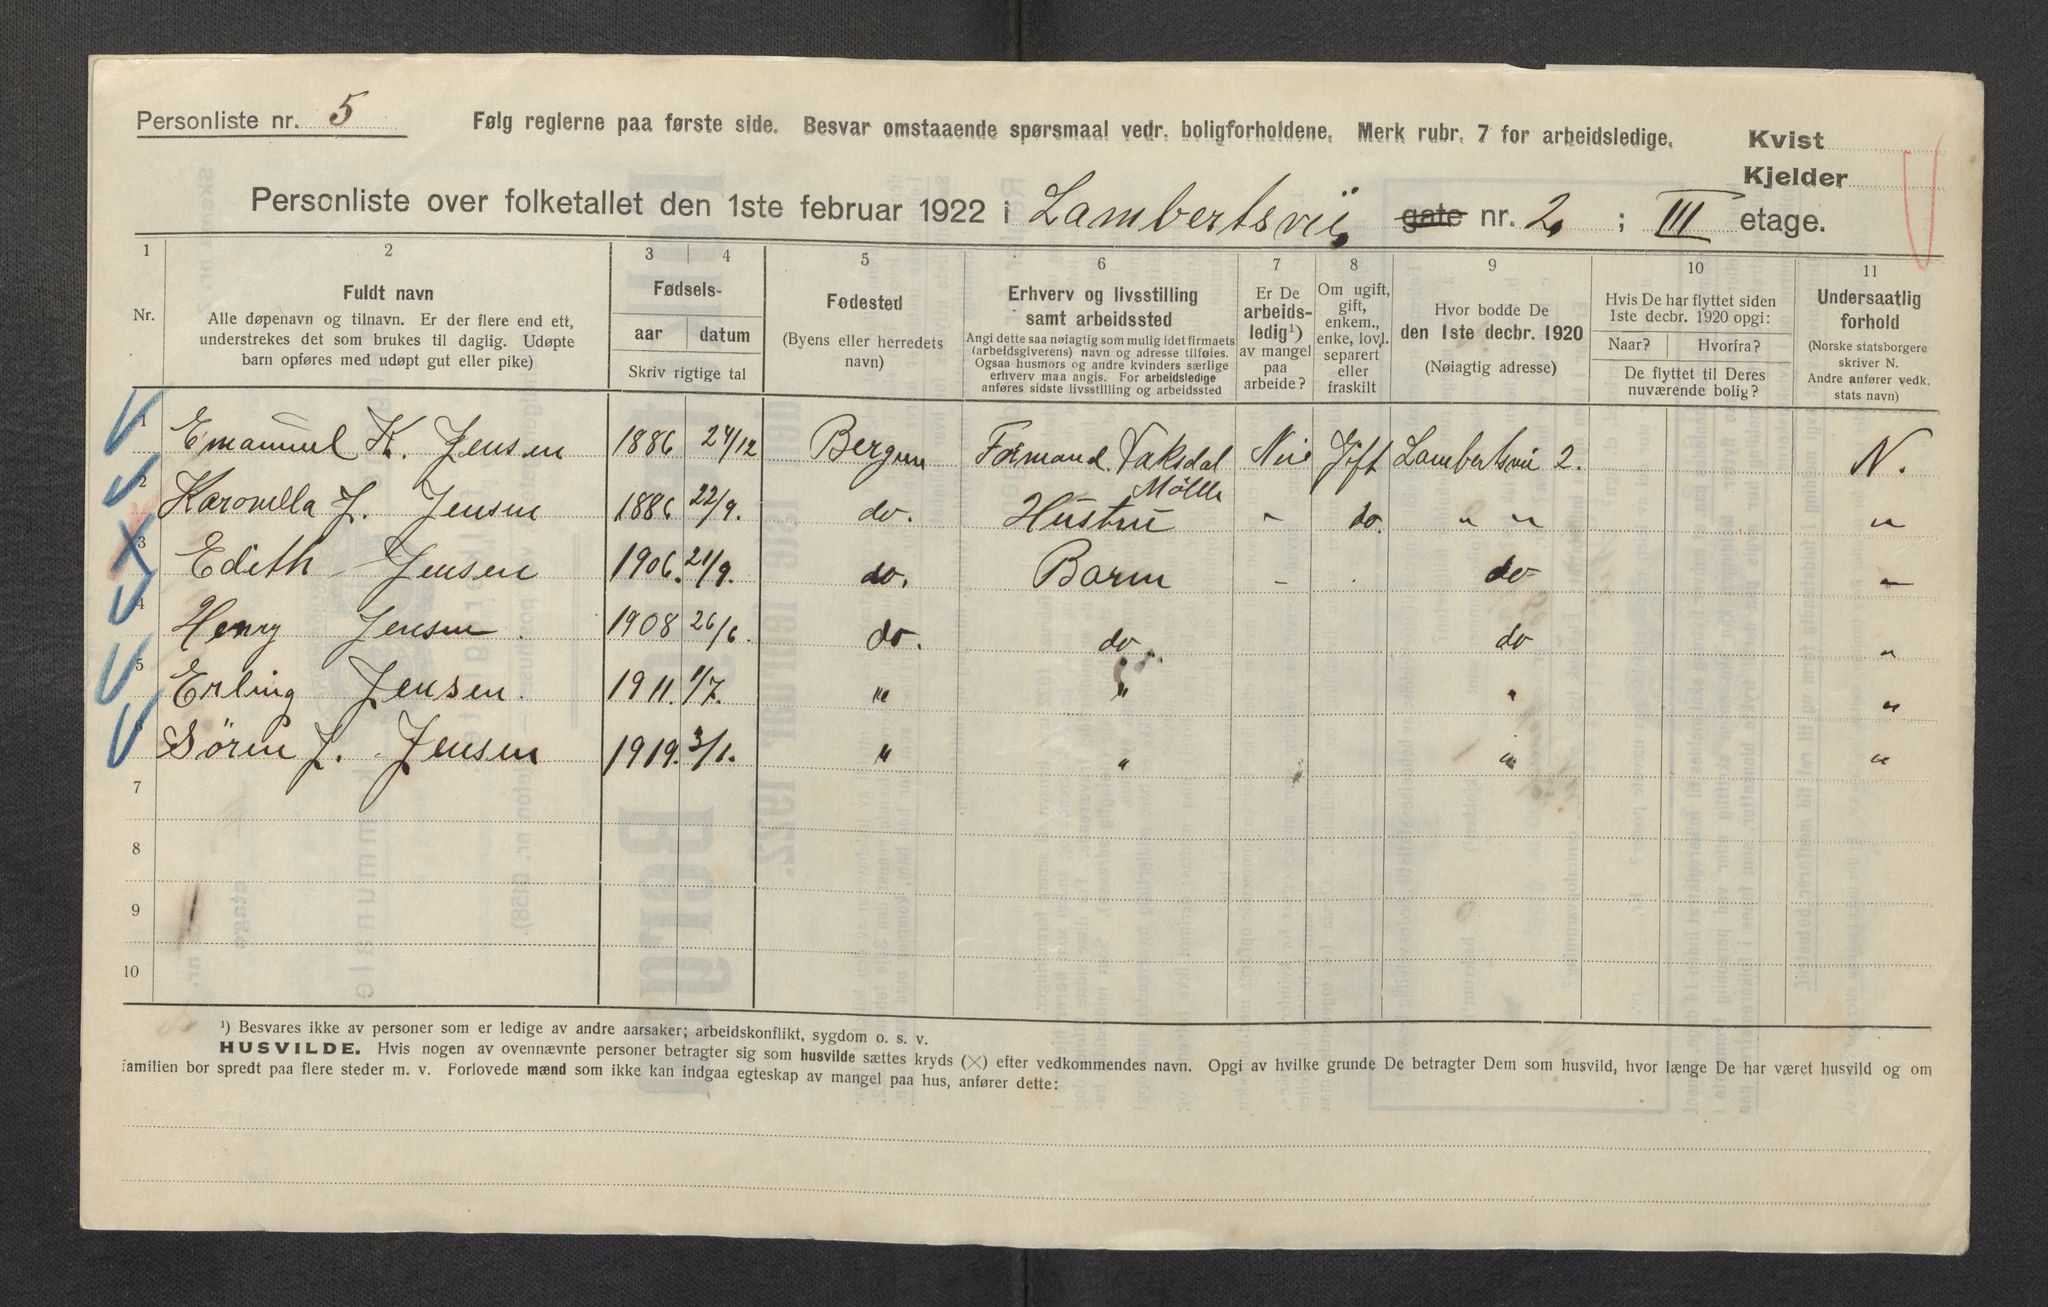 Personliste nr. 5 Følg reglerne paa første side. Besvar omstaaende spørsmaal vedr. boligforholdene. Merk rubr. 7 for arbeidsledige.
Kvist
Kjelder
Personliste over folketallet den 1ste februar 1922 i Lambertsvei gate nr. 2 ; III etage.
1 2 3 4 5 6 7 8 9 10 11
Nr.
Fuldt navn
Alle døpenavn og tilnavn. Er der flere end ett,
understrekes det som brukes til daglig. Udøpte
barn opføres med udøpt gut eller pike)
Fødsels-
aar datum
Skriv rigtige tal
Fødested
(Byens eller herredets
navn)
Erhverv og livsstilling
samt arbeidssted
Angi dette saa nøiagtig som mulig idet firmaets
(arbeidsgiverens) navn og adresse tilføies.
Ogsaa husmors og andre kvinders særlige
erhverv maa angis. For arbeidsledige
anføres sidste livsstilling og arbeidssted
Er De
arbeids-
ledig¹)
av mangel
paa
arbeide?
Om ugift,
gift,
enkem.,
enke, lovl.
separert
eller
fraskilt
Hvor bodde De
den 1ste decbr. 1920
(Nøiagtig adresse)
Hvis De har flyttet siden
1ste decbr. 1920 opgi:
Naar? Hvorfra?
De flyttet til Deres
nuværende bolig?
Undersaatlig
forhold
(Norske statsborgere
skriver N.
Andre anfører vedk.
stats navn)
1 Emanuel K. Jensen 1886 24/12 Bergen Formand Vaksdal Mølle Nei Gift Lambertsvei 2. N.
2 Karonella J. Jensen 1886 22/9. do. Hustru - do. " " "
3 Edith Jensen 1906. 21/9. do. Barn - . do "
4 Henry Jensen. 1908 26/6. do. do do "
5 Erling Jensen. 1911. 1/7. " " " "
6 Søren J. Jensen 1919. 3/1. " " " "
7
8
9
10
¹) Besvares ikke av personer som er ledige av andre aarsaker; arbeidskonflikt, sygdom o. s. v.
HUSVILDE. Hvis nogen av ovennævnte personer betragter sig som husvilde sættes kryds (×) efter vedkommendes navn. Opgi av hvilke grunde De betragter Dem som husvild, hvor længe De har været husvild og om
familien bor spredt paa flere steder m. v. Forlovede mænd som ikke kan indgaa egteskap av mangel paa hus, anfører dette: